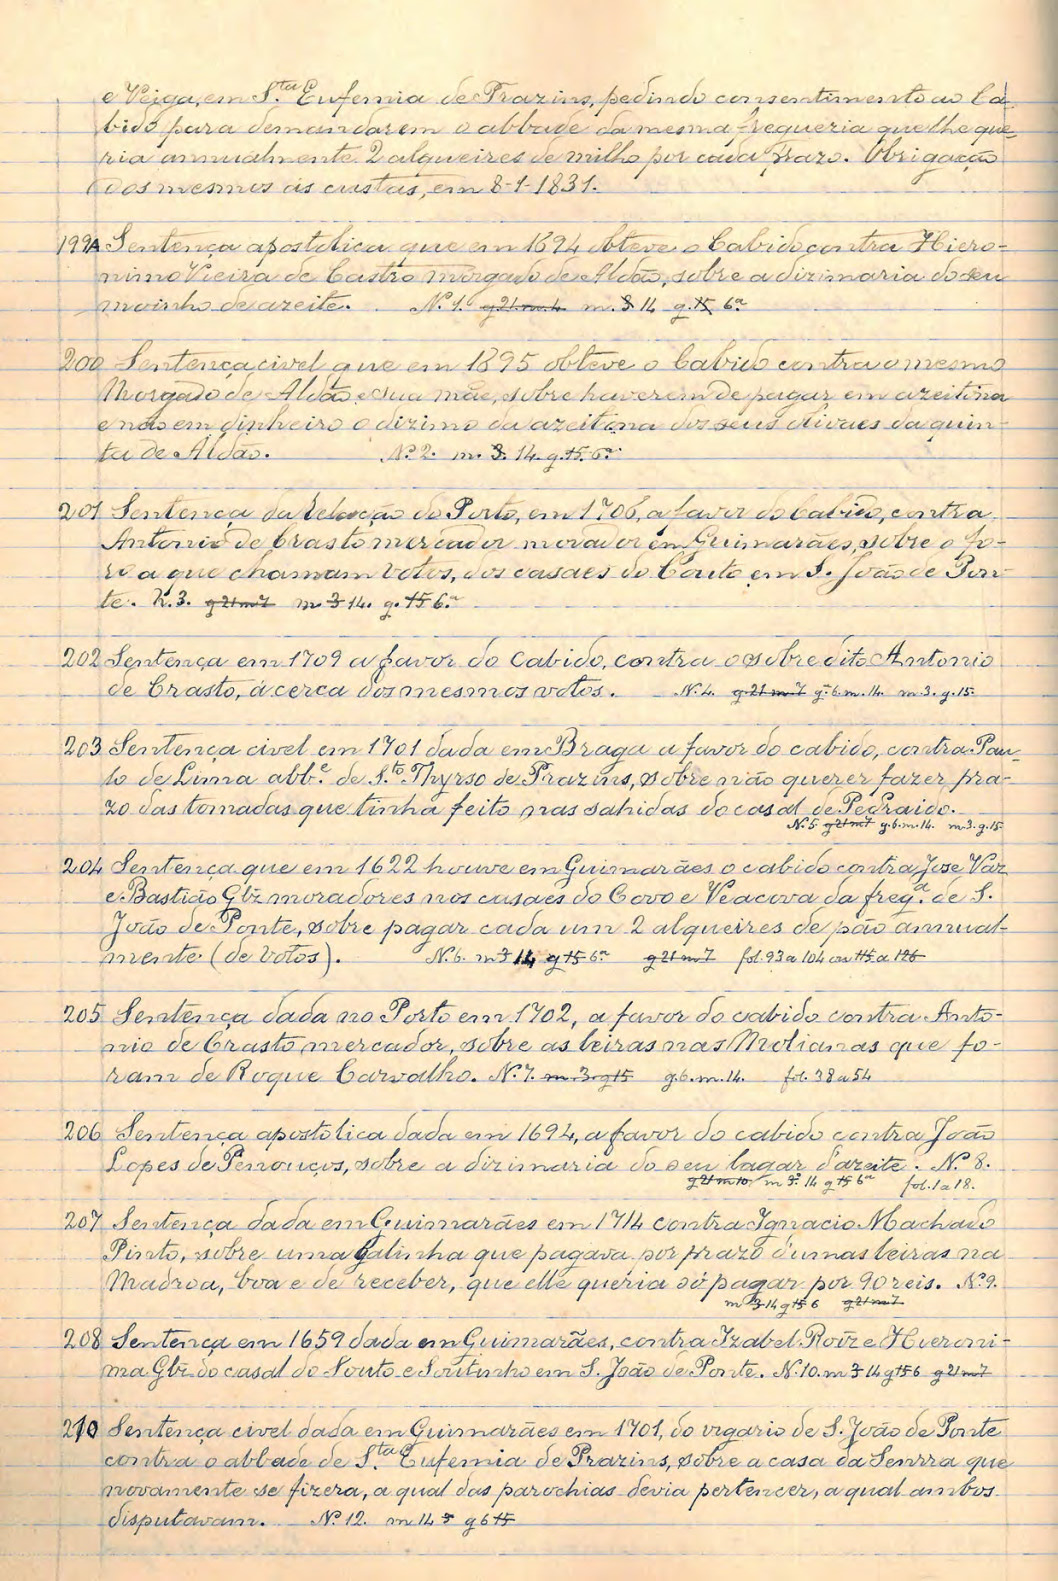 e Veiga, em S.ta Eufemia de Prazins, pedindo consentimento ao Ca-
bido para demandarem o abbade da mesma fregueria que lhe que-
ria annualmente 2 alqueires de milho por cada prazo. Obrigação
dos mesmos ás custas, em 8-1-1831.
199A Sentença apostolica que em 1694 obteve o Cabido contra Hiero-
nimo Vieira de Castro morgado de Aldão, sobre a dizimaria do seu
moinho de azeite. N.º 1. g 21 m. 4 m. 3 14 g. 15 6.ª
200 Sentença civel que em 1695 obteve o Cabido contra o mesmo
Morgado de Aldão e sua mãe, sobre haverem de pagar em azeitona
e não em dinheiro o dizimo da azeitona dos seus olivaes da quin-
ta de Aldão. N.º 2. m. 3. 14. g. 15. 6.ª
201 Sentença da Relação do Porto, em 1706, a favor do Cabido, contra
Antonio de Crasto mercador morador em Guimarães, sobre o fo-
ro a que chamam Votos, dos casaes do Couto em S. João de Pon-
te. N. 3. g 21 m 7 m. 3 14. g. 15 6.ª
202 Sentença em 1709 a favor do Cabido, contra o sobredito Antonio
de Crasto, ácerca dos mesmos votos. N.º 4. g. 21 m. 7 g. 6. m. 14. m. 3. g. 15.
203 Sentença civel em 1701 dada em Braga a favor do cabido, contra Pau-
lo de Lima abb.e de S.to Thyrso de Prazins, sobre não querer fazer pra-
zo das tomadas que tinha feito nas sahidas do casal de Pedraido.
N.º 5 g 21 m 7 g. 6. m. 14. m. 3. g. 15
204 Sentença que em 1622 houve em Guimarães o cabido contra Jose Vaz
e Bastião Glz moradores nos casaes do Covo e Veacova da freg.a de S.
João de Ponte, sobre pagar cada um 2 alqueires de pão annual-
mente (de Votos). N.º 6. m 3 14 g 15 6.ª g 21 m 7 fol. 93 a 104 ou 115 a 126
205 Sentença dada no Porto em 1702, a favor do cabido contra Anto-
nio de Crasto mercador, sobre as leiras nas Molianas que fo-
ram de Roque Carvalho. N.º 7. m. 3. g 15 g. 6. m. 14. fol. 38 a 54
206 Sentença apostolica dada em 1694, a favor do cabido contra João
Lopes de Penouços, sobre a dizimaria do seu lagar d'azeite. N.º 8.
g 21 m 10. m 3 14 g 15 6.ª fol. 1 a 18.
207 Sentença dada em Guimarães em 1714 contra Ignacio Machado
Pinto, sobre uma galinha que pagava por prazo d'umas leiras na
Madroa, boa e de receber, que elle queria só pagar por 90 reis. N.º 9.
m 3 14 g 15 6 g 21 m 7
208 Sentença em 1659 dada em Guimarães, contra Izabel Roiz e Hieroni-
ma Glz do casal do Souto e Soutinho em S. João de Ponte. N.º 10. m 3 14 g 15 6 g 21 m 7
210 Sentença civel dada em Guimarães em 1701, do vigario de S. João de Ponte
contra o abbade de S.ta Eufemia de Prazins, sobre a casa da Senrra que
novamente se fizera, a qual das parochias devia pertencer, a qual ambos
disputavam. N.º 12. m 14 3 g 6 15